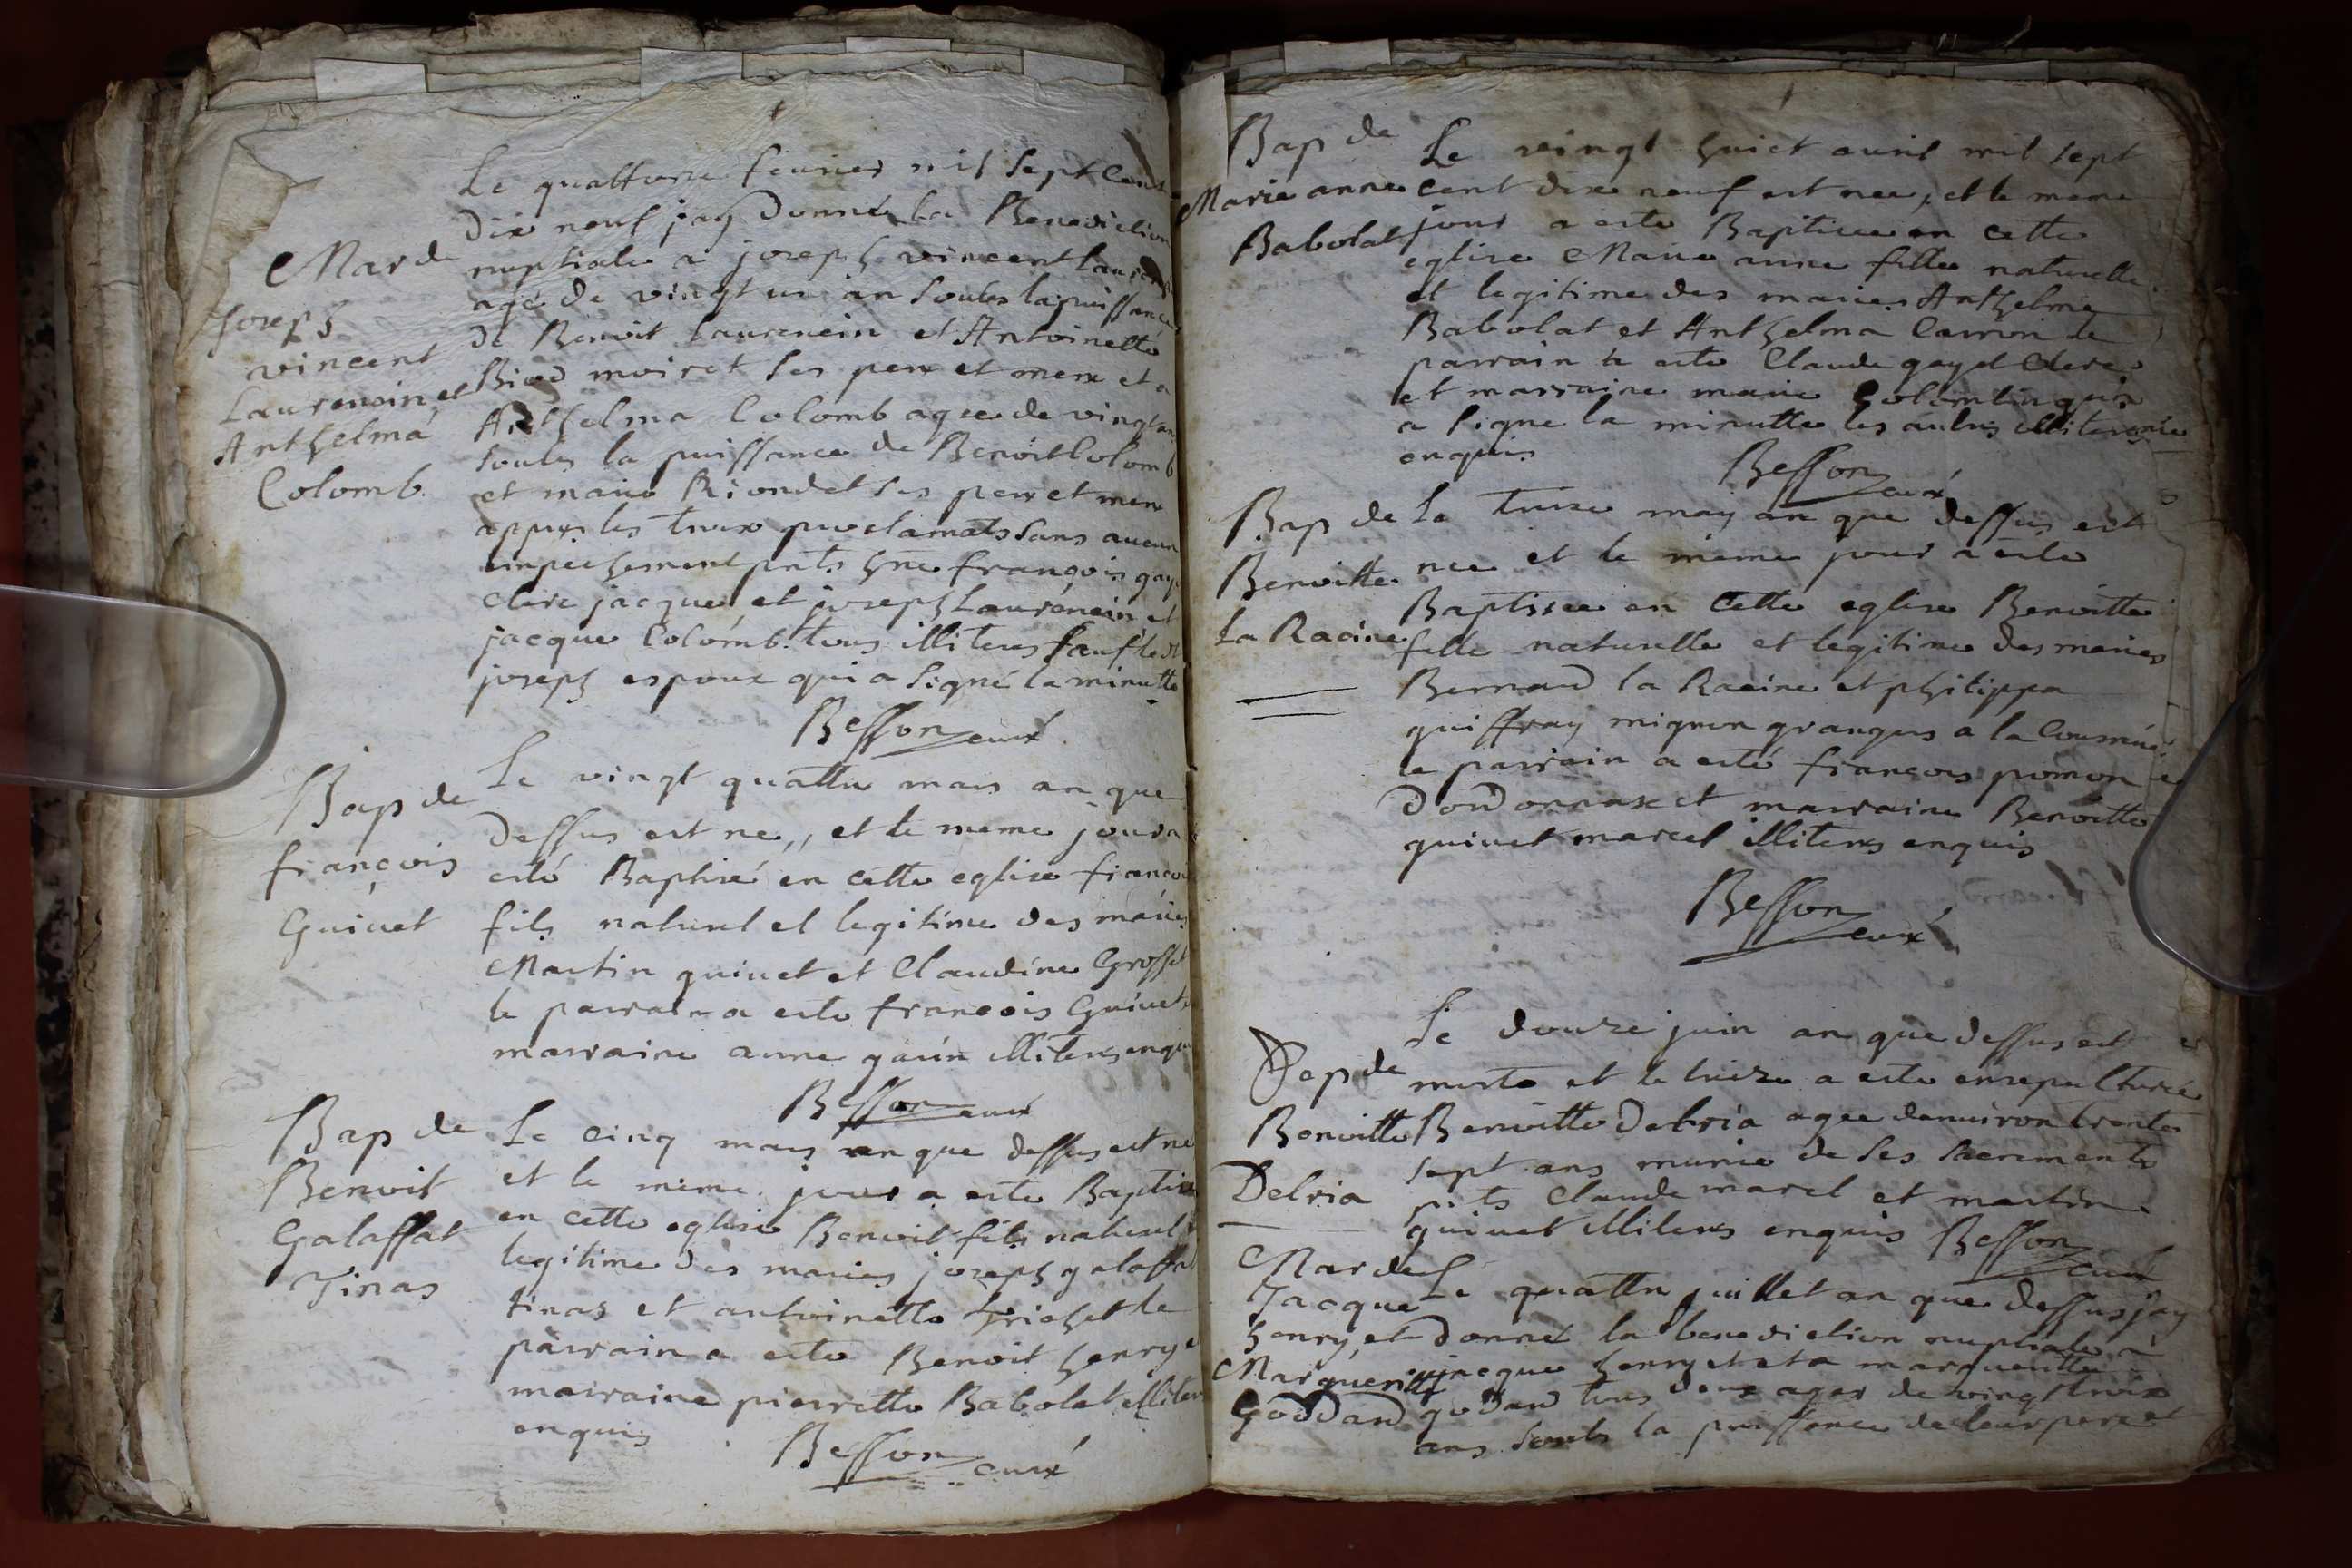 Le quattorze feurier mil sept cent
Dix neuf jay Donné la Benediction
nuptiale a joseph vincent
agé de vingt un an soubs la puissance
de Benoit Laurencin et Antoinette
moiret ses pere et mere et a
Anthelma Colomb agee de vingt ans
soubs la puissance de Benoit Colomb
et marie Riondet ses pere et mere
appres les trois proclamats sans aucun
empechement pnts françois
clerc jacque et joseph Laurencin et
jacque Colomb. tous illiteres sauf le dt
joseph espoux qui a signé la minutte
Besson curé
Mar de
Joseph
vincent
Laurencin et
Anthelma
Colomb.
Le vingt quattre mars an que
Dessus est ne, et le meme jour a
esté Baptisé en cette eglise françois
fils naturel et legitime des maries
Martin guiuet et Claudine Grosset
le parrain a esté françois Guiuet
marraine anne garin illiteres enquis
Besson curé
Bap de
françois
Guiuet
Le cinq mars an que dessus est ne
et le meme jour a esté Baptisé
en cette eglise Benoit fils naturel
legitime des maries joseph galaffat
tinas et antoinette le
parrain a esté Benoit henry
marraine pierrette Babolat
enquis
Besson curé
Bap de
Benoit
Galaffat
Tinas
Bap de
Marie anne
Babolat
Le vingt huict auril mil sept
cent dix neuf est nee, et le meme
jour a esté Baptisee en cette
eglise Marie anne fille naturelle
et legitime des maries Anthelme
Babolat et Anthelma Carron le
parrain a esté Claude gayet clerc
et marraine marie
a signe la minutte les autres
enquis
Besson curé
Bap de
Benoitte
La Racine
Le treize may an que dessus est
nee et le meme jour a esté
Baptisee en cette eglise Benoitte
fille naturelle et legitime des maries
Bernard la Racine et philippa
guiffray mignon a la
le parrain a esté françois
marraine Benoitte
guiuet marcel illiteres enquis
Besson
curé
Sep de
Benoitte
Delria
Le douze juin an que dessus est
morte et le treize a esté ensepulturée
Benoitte Delria agee denuiron trente
sept ans munie de ses sacrements
pnts Claude marcel et martin
guiuet illiteres enquis Besson
curé
Mar de
Jacque
henry, et
Marguerite
Goddard
Le quattre juillet an que dessus jay
donné la benediction nuptiale a
jacque henry et a marguerite
godard tous deux ages de vingt trois
ans soubs la puissance de leur pere et